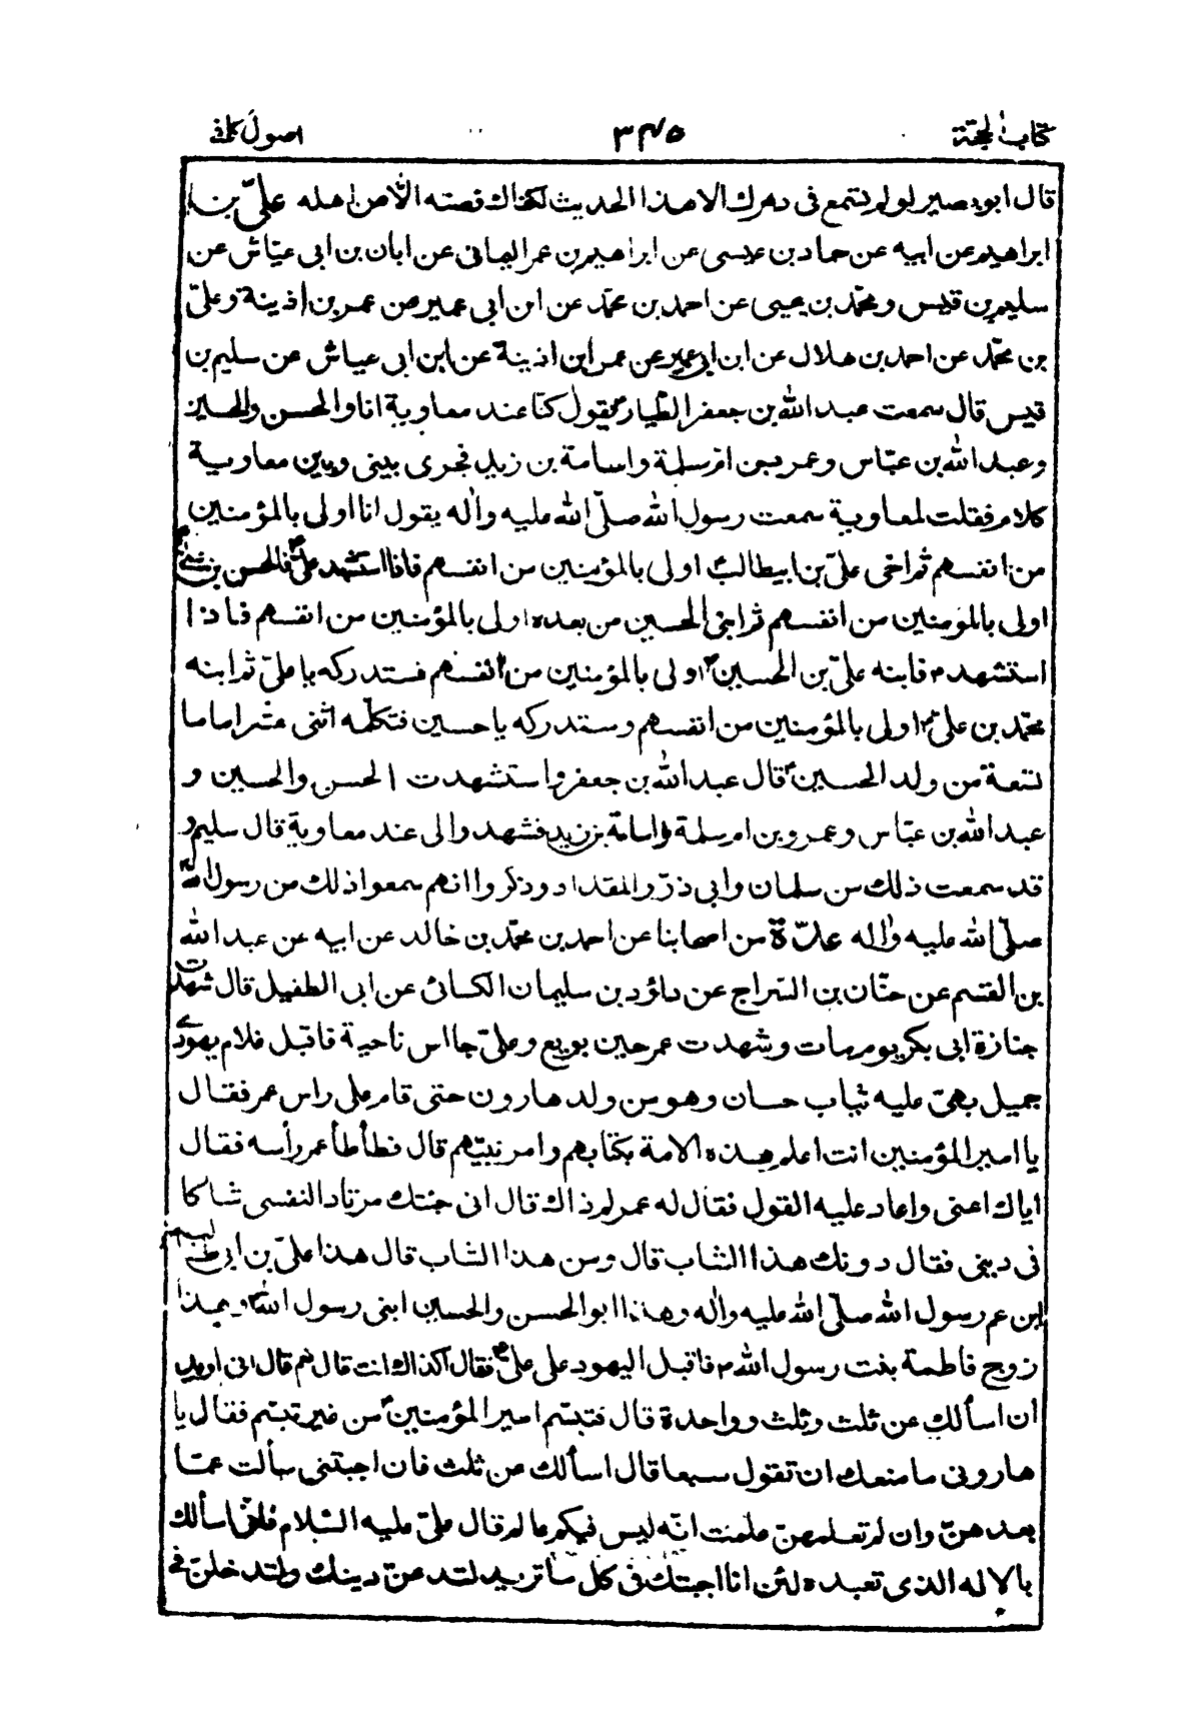 كتاب الحجة ٣٤٥ اصول كافى
قال ابوبصير لو لم تسمع فى دهرك الا هذا الحديث لكفاك فصنه الا من اهله علىّ بن
ابراهيم عن ابيه عن حماد بن عيسى عن ابراهيم بن عمر اليمانى عن ابان بن ابى عيّاش عن
سليم بن قيس ومحمّد بن يحيى عن احمد بن محمّد عن ابن ابى عمير عن عمر بن اذينة وعلىّ
بن محمّد عن احمد بن هلال عن ابن ابى عمير عن عمر ابن اذينة عن ابن ابى عياش عن سليم بن
قيس قال سمعت عبد الله بن جعفر الطّيار يقول كنّا عند معاوية انا والحسن والحسين
وعبد الله بن عبّاس وعمر بن ام سلمة واسامة بن زيد فجرى بينى وبين معاوية
كلام فقلت لمعاوية سمعت رسول الله صلّى الله عليه واله يقول انا اولى بالمؤمنين
من انفسهم ثم اخى علىّ بن ابيطالب اولى بالمؤمنين من انفسهم فاذا استشهد علىّ فالحسن بن علىّ
اولى بالمؤمنين من انفسهم ثم ابنى الحسين من بعده اولى بالمؤمنين من انفسهم فاذا
استشهد م فابنه علىّ بن الحسين اولى بالمؤمنين من انفسهم فستدركه يا علىّ ثم ابنه
محمّد بن علىّ اولى بالمؤمنين من انفسهم وستدركه يا حسين فتكلّمه اثنى عشر اماما
تسعة من ولد الحسين قال عبد الله بن جعفر واستشهدت الحسن والحسين و
عبد الله بن عبّاس وعمرو بن ام سلمة واسامة بن زيد فشهدوا لى عند معاوية قال سليم و
قد سمعت ذلك من سلمان وابى ذرّ والمقداد وذكروا انهم سمعوا ذلك من رسول الله
صلّى الله عليه واله عدّة من اصحابنا عن احمد بن محمّد بن خالد عن ابيه عن عبد الله
بن القسم عن حنّان بن السّراج عن داؤد بن سليمان الكسائى عن ابى الطفيل قال شهدت
جنازة ابى بكر يوم مات وشهدت عمر حين بويع وعلىّ جالس ناحية فاقبل غلام يهودى
جميل بهىّ عليه ثياب حسان وهو من ولد هارون حتى قام على راس عمر فقال
يا امير المؤمنين انت اعلم هذه الامة بكتابهم وامر نبيّهم قال فطأطأ عمر رأسه فقال
اياك اعنى واعاد عليه القول فقال له عمر لم ذاك قال انى جئتك مرتاد النفسى شاكا
فى دينى فقال دونك هذا الشاب قال ومن هذا الشاب قال هذا علىّ بن ابى طالب
ابن عم رسول الله صلّى الله عليه واله وهذا ابو الحسن والحسين ابنى رسول الله وهذا
زوج فاطمة بنت رسول الله م فاقبل اليهود على علىّ فقال اكذاك انت قال نعم قال انى اريد
ان اسألك عن ثلث وثلث وواحدة قال فتبسّم امير المؤمنين من غير تبسّم فقال يا
هارونى ما منعك ان تقول سبعا قال اسألك عن ثلث فان اجبتنى سألت عمّا
بعدهنّ وان لم تعلمهنّ علمت انّه ليس فيكم عالم قال علىّ عليه السّلام فانى اسألك
بالاله الذى تعبده لئن انا اجبتك فى كل ما تريد لتدعنّ دينك ولتدخلنّ فى